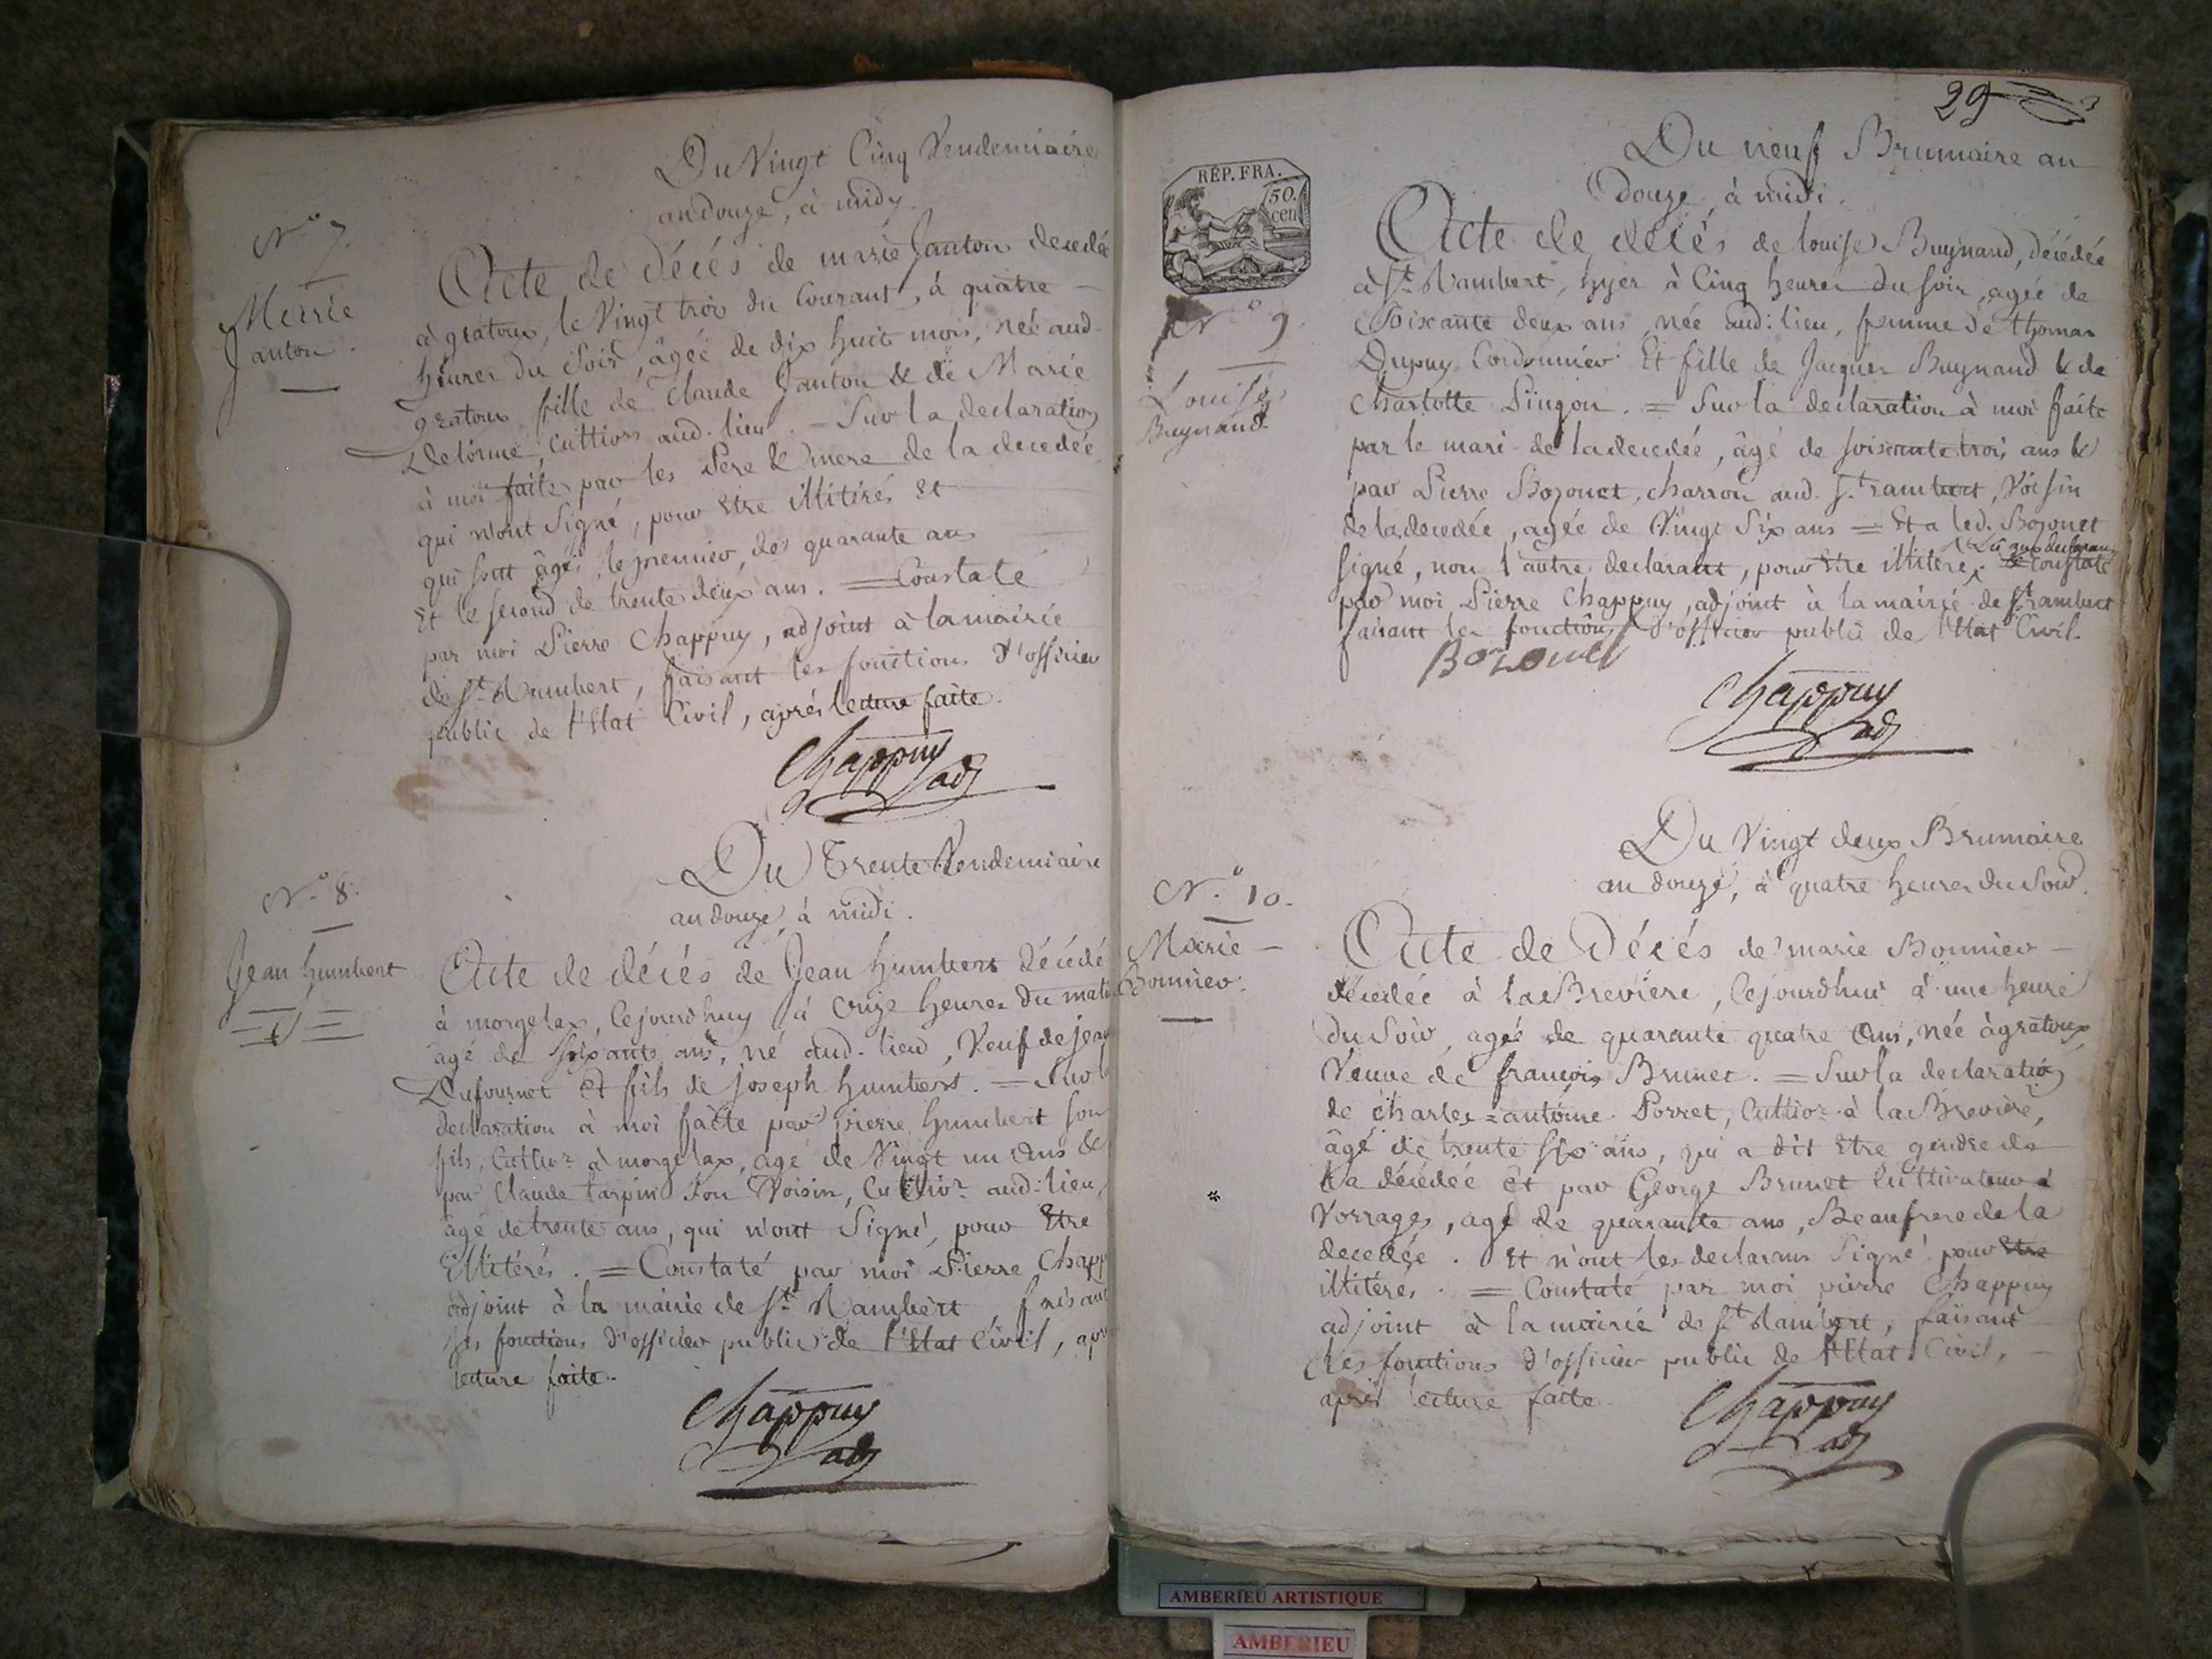 Du Vingt Cinq Vendemiaire
an douze, à midy.
N.° 7.
Marie
Janton.
Acte de décés de marie Janton decedée
à gratoux, le Vingt trois du Courant, à quatre
heures du Soir, âgée de dix huit mois, née aud.
gratoux fille de Claude Janton & de Marie
Delorme, Cultivrs aud. lieu. = Sur la declaration
à moi faite par les Pere & mere de la decedée
qui n'ont Signé, pour Etre illitérés Et
qui sont âgés, le premier, des quarante ans
Et le second de trente deux ans. = Constaté
par moi Pierre Chappuy, adjoint à la mairie
de St. Rambert, faisant les fonctions d'officier
public de l'Etat Civil, aprés lecture faite.
Chappuy
adj
Du Trente Vendemiaire
an douze, à midi.
N.° 8.
Jean humbert
Acte de décés de Jean humbert décédé
à morgelax, Cejourdhuy à onze heures du mati
âgé de soixante ans, né aud. lieu, Veuf de jean
Dufournet et fils de joseph humbert. = Sur l
declaration à moi faite par pierre humbert son
fils, Cultivr à morgelax, agé de Vingt un ans &
par Claude tarpin Son Voisin, Cultivr aud. lieu,
âgé de trente ans, qui n'ont Signé, pour Etre
Illitérés. = Constaté par moi Pierre Chapp
adjoint à la mairie de St. Rambert, faisant
les fonctions d'officier public de l'Etat Civil, apr
lecture faite.
Chappuy
adj
29
RÉP. FRA.
50.
cen
Du neuf Brumaire an
Douze, à midi.
N.° 9.
Louise
Buynand.
Acte de décés de louise Buynand, décédée
à St. Rambert, hyer à Cinq heures du soir, agée de
Soixante deux ans, née aud. lieu, femme de thomas
Dupuy Cordonnier Et fille de Jacques Buynand & de
Charlotte Pingon. = Sur la declaration à moi faite
par le mari de la decedée, âgé de soixante trois ans &
par Pierre Bozonet, charron aud. St. rambert, Voisin
de la decedée, agée de Vingt Six ans = Et a led. Bozonet
signé, non l'autre declarant, pour Etre illitéré, & Constaté
Lû aux declarans
par moi Pierre Chappuy, adjoint à la mairie de St. rambert
faisant les fonctions d'officier public de l'Etat Civil.
Bozonet
Chappuy
adj
Du Vingt deux Brumaire
an douze, à quatre heures du Soir.
N.° 10.
Marie
Bonnier.
Acte de Décés de marie Bonnier
décedée à la Breviere, Cejourdhui à une heure
du Soir, agée de quarante quatre ans, née à gratoux,
Veuve de françois Brunet. = Sur la declaration
de charles-antoine Porret, Cultivr à la Breviere,
âgé de trente six ans, qui a dit Etre gendre de
la décédée Et par George Brunet Cultivateur à
Vorrages, agé de quarante ans, Beaufrere de la
decedée. Et n'ont les declarans Signé pour Etre
illitérés. = Constaté par moi pierre Chappuy
adjoint à la mairie de St. Rambert, faisant
les fonctions d'officier public de l'Etat Civil,
aprés lecture faite.
Chappuy
adj
AMBERIEU ARTISTIQUE
AMBERIEU